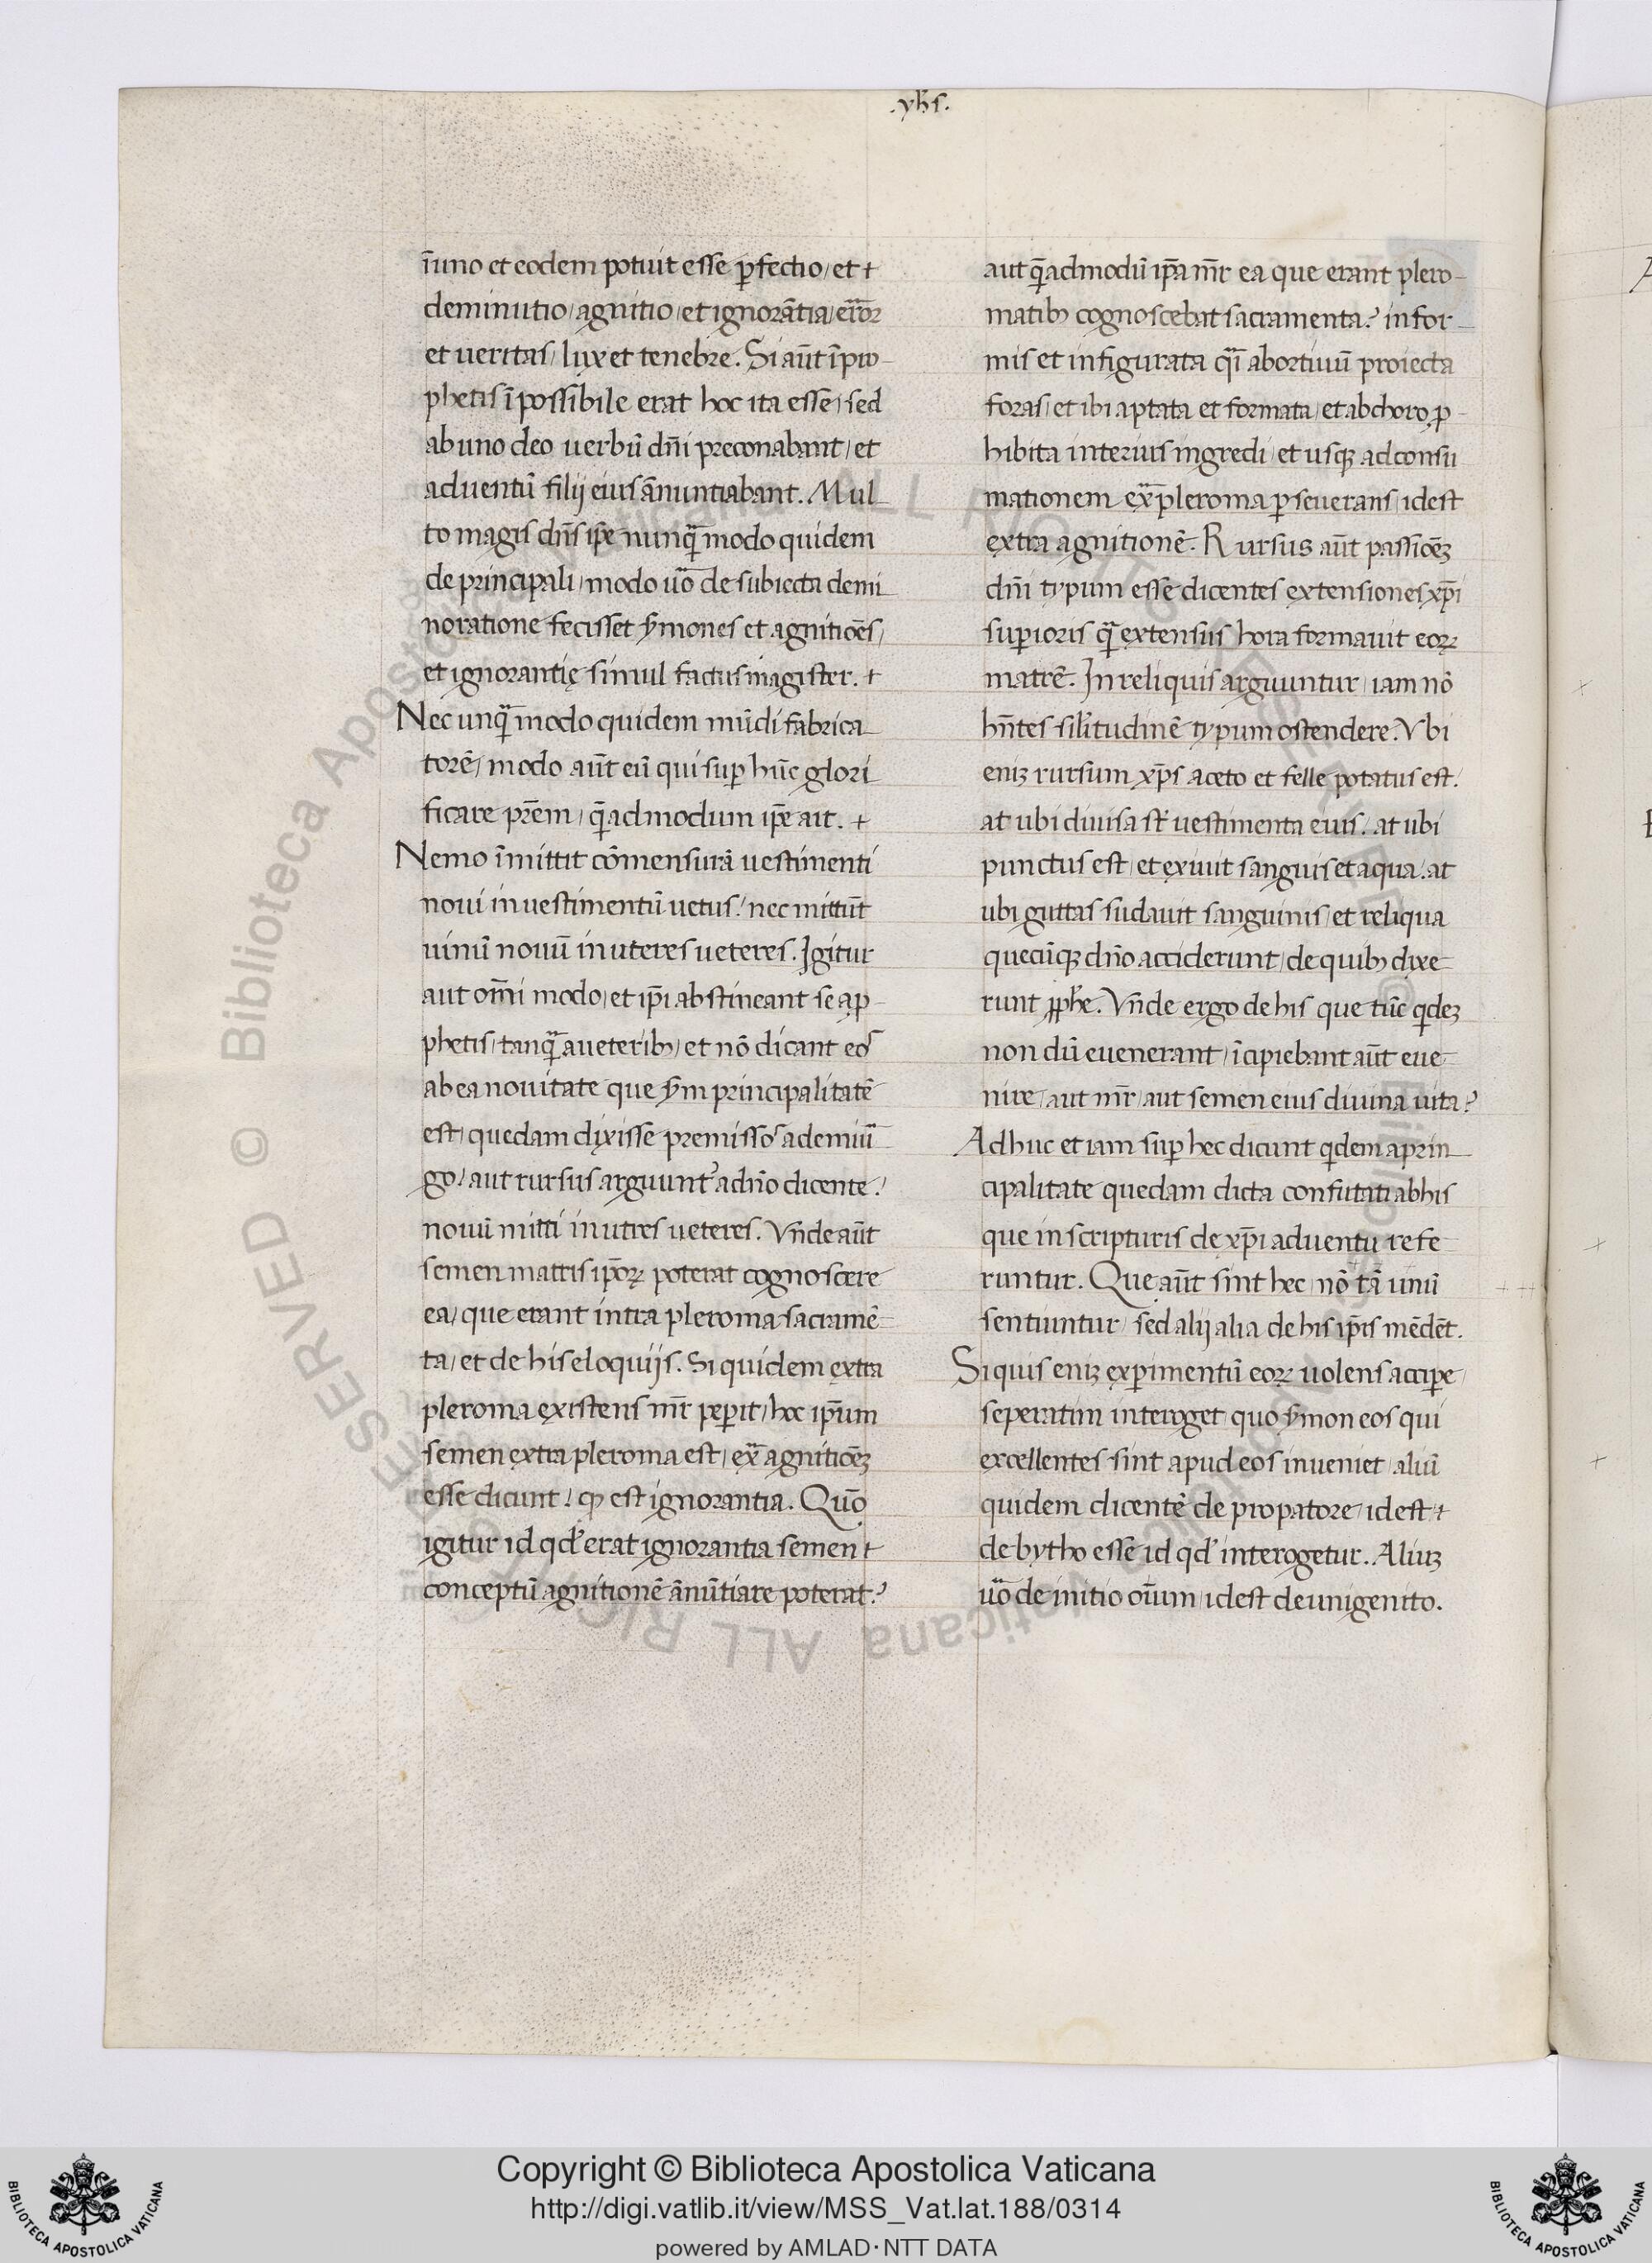 .yh̄s.
ī uno et eodem potuit esse ꝑfectio, et +
deminutio, agnitio, et ignorātia, error
et ueritas, lux et tenebre. Si aūt ī pro-
phetis īpossibile erat hoc ita esse, sed
ab uno deo uerbū dn̄i preconabant, et
aduentū filij eius ānuntiabant. Mul-
to magis dn̄s ip̄e nunq̄ modo quidem
de principali, modo uo᷆ de subiecta demi-
noratione fecisset ẜmones et agnitiōes,
et ignorantię simul factus magister. +
Nec unq̄ modo quidem mūdi fabrica-
torē, modo aūt eū qui suꝑ hūc glori-
ficare pr̄em, q̄admodum ip̄e ait. +
Nemo īmittit cōmensurā uestimenti
noui in uestimentū uetus! nec mittūt
uinū nouū in uteres ueteres. Igitur
aut om̄i modo, et ip̄i abstineant se a ꝓ-
phetis, tanq̄ a ueteribꝫ, et nō dicant eos
ab ea nouitate que ẜm principalitatē
est, quedam dixisse premissos a demiu-
go! aut rursus arguunt᷑ a dn̄o dicente!
nouū mitti in utres ueteres. Vn̄de aūt
semen matris ip̄oꝝ poterat cognoscere
ea, que erant intra pleroma sacramē-
ta, et de his eloquijs. Si quidem extra
pleroma existens mr̄ peꝑit, hoc ip̄um
semen extra pleroma est, ex̄ agnitiōeꝫ
esse dicunt! qꝫ est ignorantia. Quō
igitur id qd᷑ erat ignorantia semen +
conceptū agnitionē ānūtiare poterat?
aut q̄admodū ip̄a mr̄ ea que erant plero-
matibꝫ cognoscebat sacramenta? infor-
mis et infigurata q̄i abortiuū proiecta
foras, et ibi aptata et formata, et ab choro ꝓ-
hibita interius ingredi, et usqꝫ ad consu-
mationem ex̄ pleroma ꝑseuerans, idest
extra agnitionē. Rursus aūt passiōeꝫ
dn̄i typum esse dicentes extensiones xp̄i
suꝑioris q̄ extensus hora formauit eoꝝ
matrē. In reliquis arguuntur, iam nō
hn̄tes sil̄itudinē typum ostendere. Vbi
eniꝫ rursum xp̄s aceto et felle potatus est!
at ubi diuisa st̄ uestimenta eius! at ubi
punctus est, et exiuit sanguis et aqua! at
ubi guttas sudauit sanguinis, et reliqua
quecūqꝫ dn̄o acciderunt, de quibꝫ dixe-
runt ꝓph̄e. Vn̄de ergo de his que tūc qdeꝫ
non dū euenerant, īcipiebant aūt eue-
nire, aut mr̄ aut semen eius diuina uita?
Adhuc et iam suꝑ hec dicunt qdem a prin-
cipalitate quedam dicta confutati ab his
que in scripturis de xp̄i aduentu refe-
runtur. Que aūt sint hec, nō tā unū
sentiuntur, sed alij alia de his ip̄is mēdēt.
Si quis eniꝫ exꝑimentū eoꝝ uolens acciꝑe,
seperatim interoget, quo ẜmon eos qui
excellentes sint apud eos inueniet, aliū
quidem dicentē de propatore, idest +
de bytho esse id qd᷑ interogetur. Aliuꝫ
uo᷆ de initio oīum, idest de unigenito.
Copyright © Biblioteca Apostolica Vaticana
http://digi.vatlib.it/view/MSS_Vat.lat.188/0314
powered by AMLAD·NTT DATA